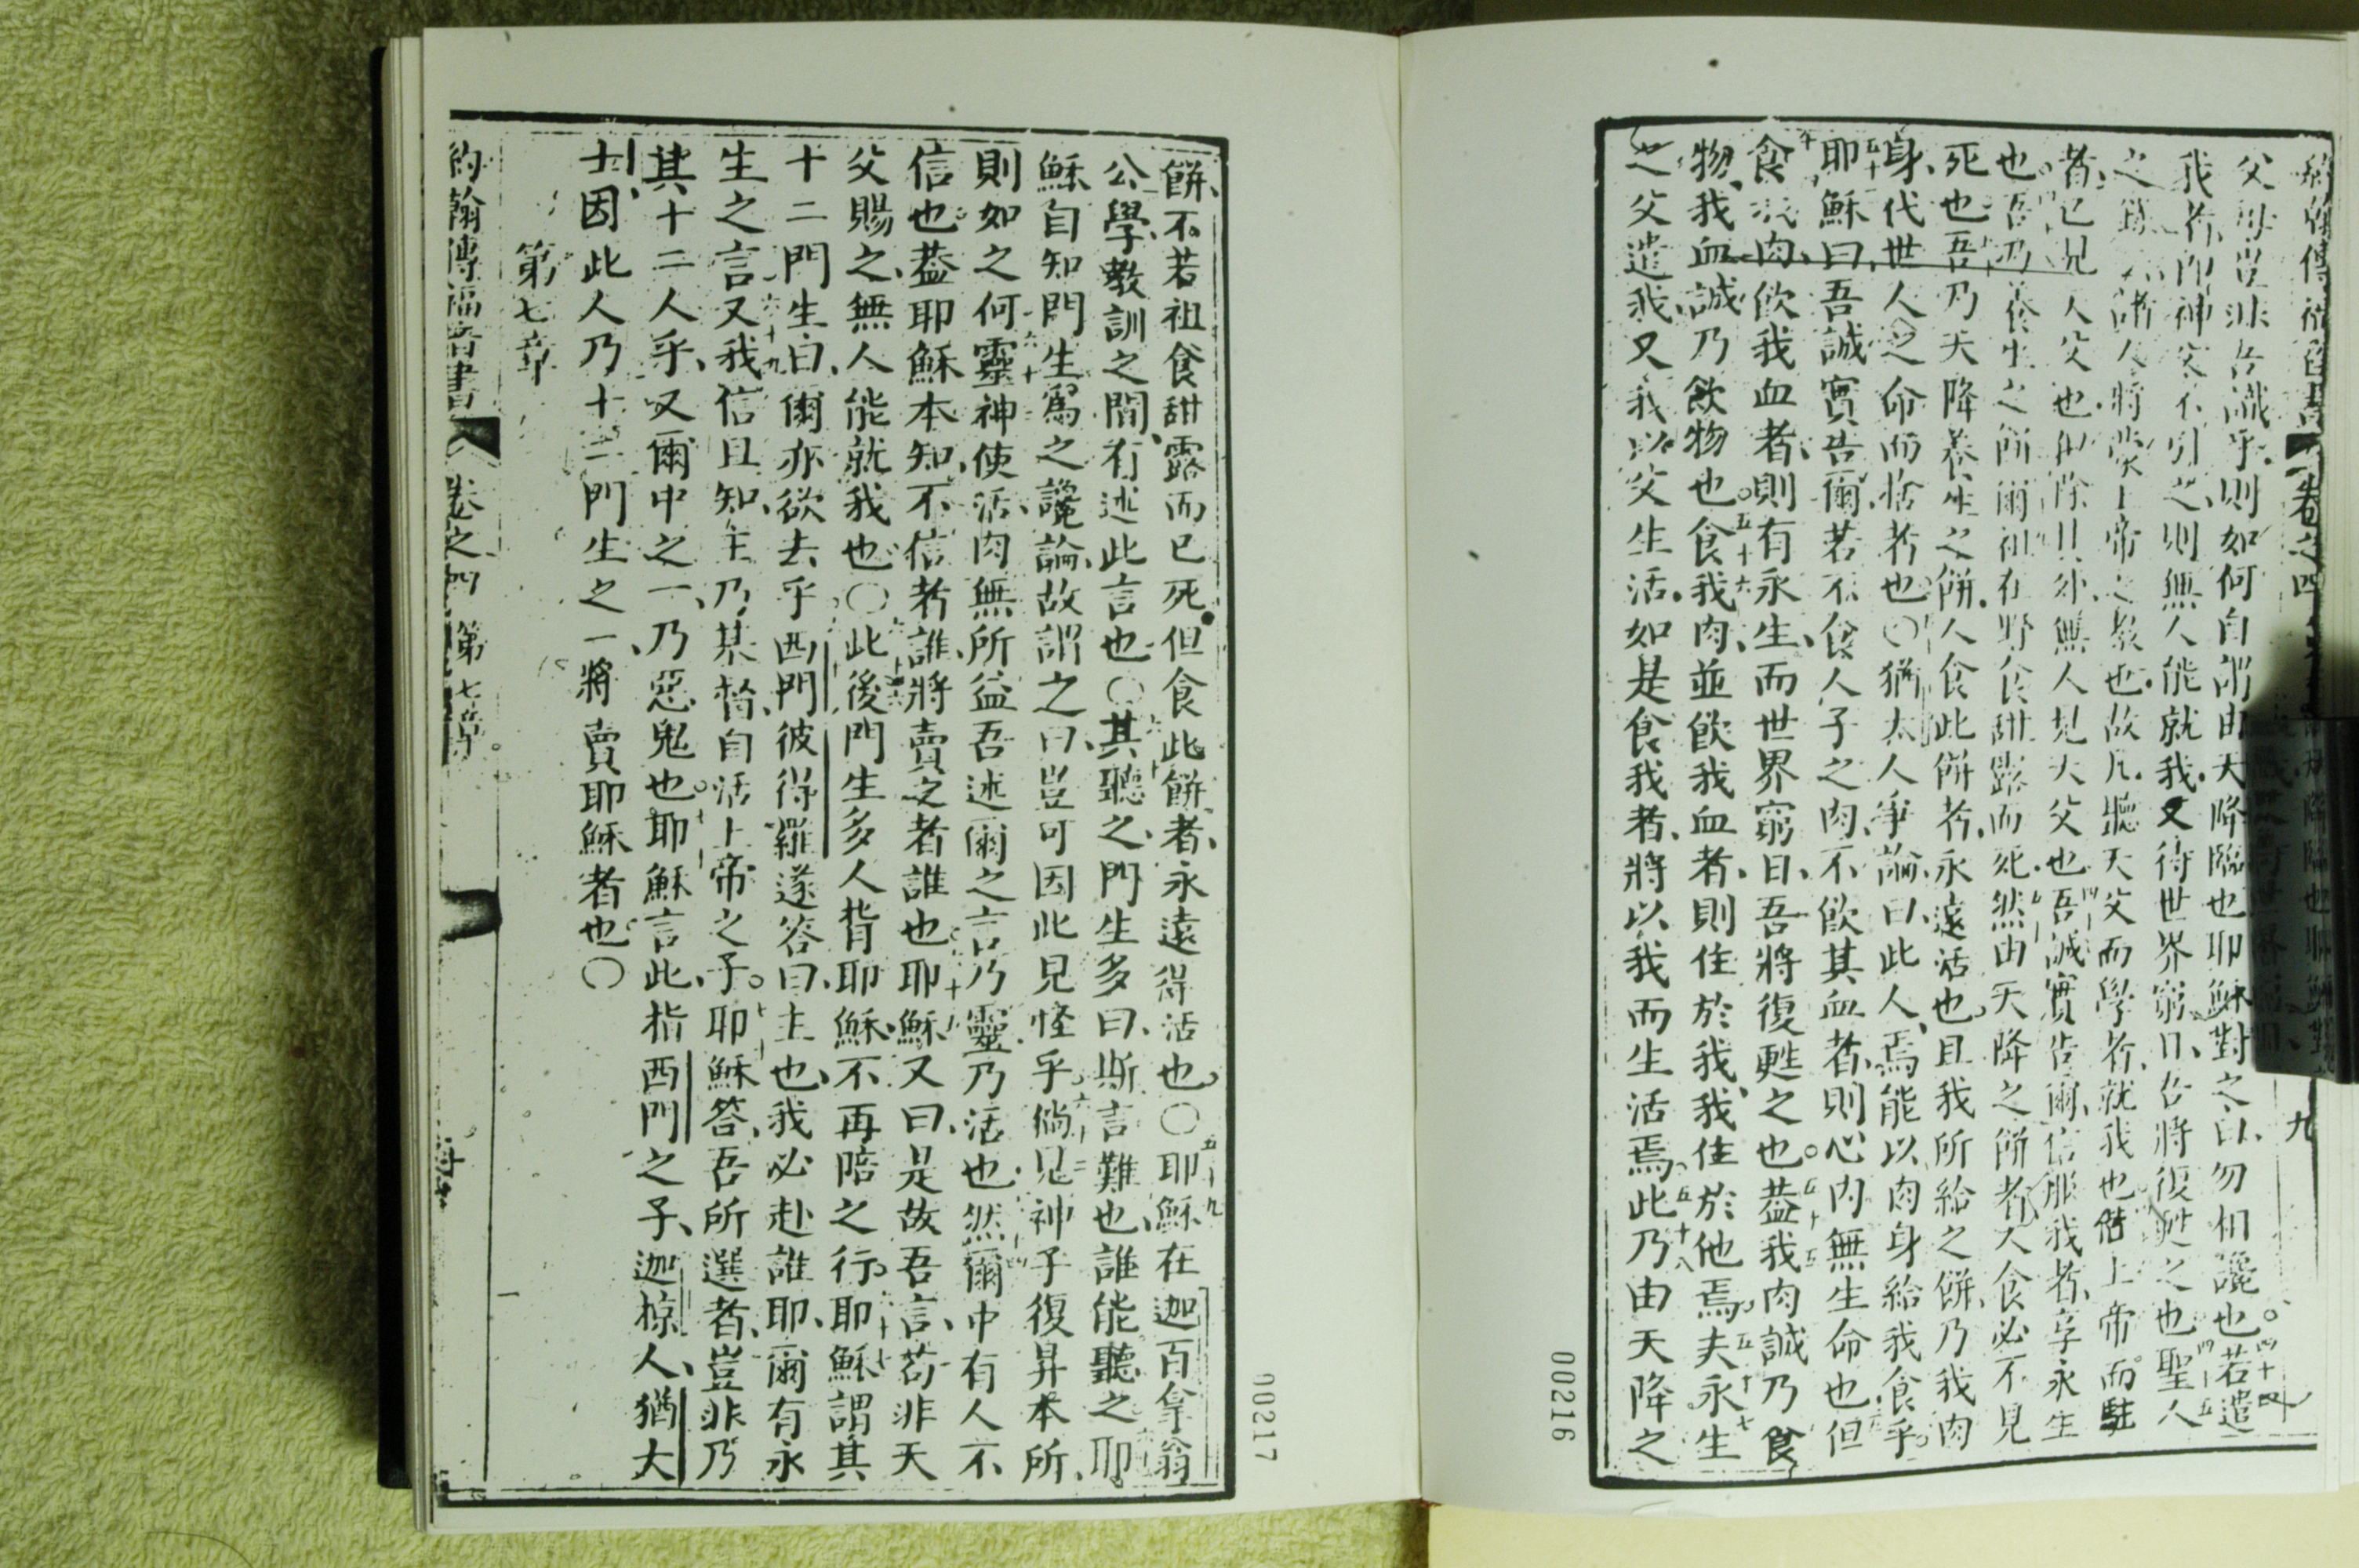 父母豈非吾識乎則如何自謂由天降臨也耶穌對之曰勿相讒也若遣
我者即神父不引之則無人能就我又待世界窮日吾將復甦之也聖人
之錄 諸人將蒙上帝之教也故凡聽天父而學者就我也偕上帝而駐
者已見人父也但除其外無人見天父也吾誠實告爾信服我者享永生
也吾乃養生之餅爾祖在野食甜露而死然由天降之餅者人食必不見
死也吾乃天降養生之餅人食此餅者永遠活也且我所給之餅乃我肉
身代世人之命而捨者也〇猶太人爭論曰此人焉能以肉身給我食乎
耶穌曰吾誠實告爾若不食人子之肉不飲其血者則心內無生命也但
食我肉飲我血者則有永生而世界窮日吾將復甦之也蓋我肉誠乃食
物我血誠乃飲物也食我肉並飲我血者則住於我我住於他焉夫永生
之父遣我又我以父生活如是食我者將以我而生活焉此乃由天降之
九
00216
餅不若祖食甜露而已死但食此餅者永遠得活也〇耶穌在迦百拿翁
公學教訓之間有述此言也〇其聽之門生多曰斯言難也誰能聽之耶
穌自知門生爲之讒論故謂之曰豈可因此見怪乎倘見神子復昇本所
則如之何靈神使活肉無所益吾述爾之言乃靈乃活也然爾中有人不
信也蓋耶穌本知不信者誰將賣之者誰也耶穌又曰是故吾言若非天
父賜之無人能就我也〇此後門生多人背耶穌不再陪之行耶穌謂其
十二門生曰爾亦欲去乎西門彼得羅遂答曰主也我必赴誰耶爾有永
生之言又我信且知主乃基督自活上帝之子耶穌答吾所選者豈非乃
其十二人乎又爾中之一乃惡鬼也耶穌言此指西門之子迦椋人猶大
士因此人乃十二門生之一將賣耶穌者也〇
第七章
約翰傳福音書 卷之四 第七章
00217